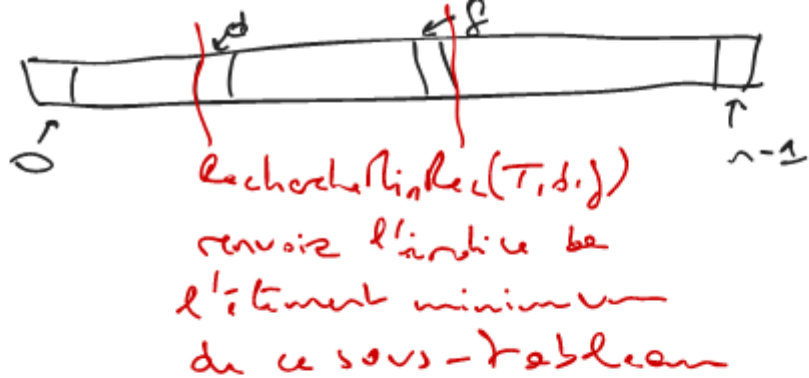 d f
0 n-1
RechercheMinRec(T,d,f)
renvoie l'indice de
l'élément minimum
de ce sous-tableau